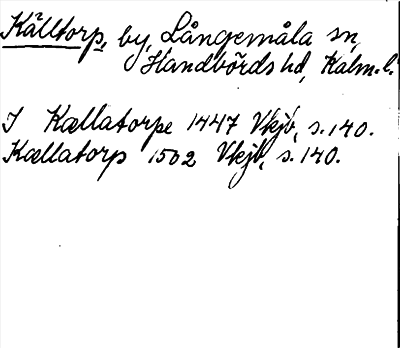 Källtorp, by, Långemåla sn,
Handbörds hd, Kalm. l.
I Kællatorpe 1447 Vkjb, s. 140.
Kællatorp 1502 Vkjb, s. 140.